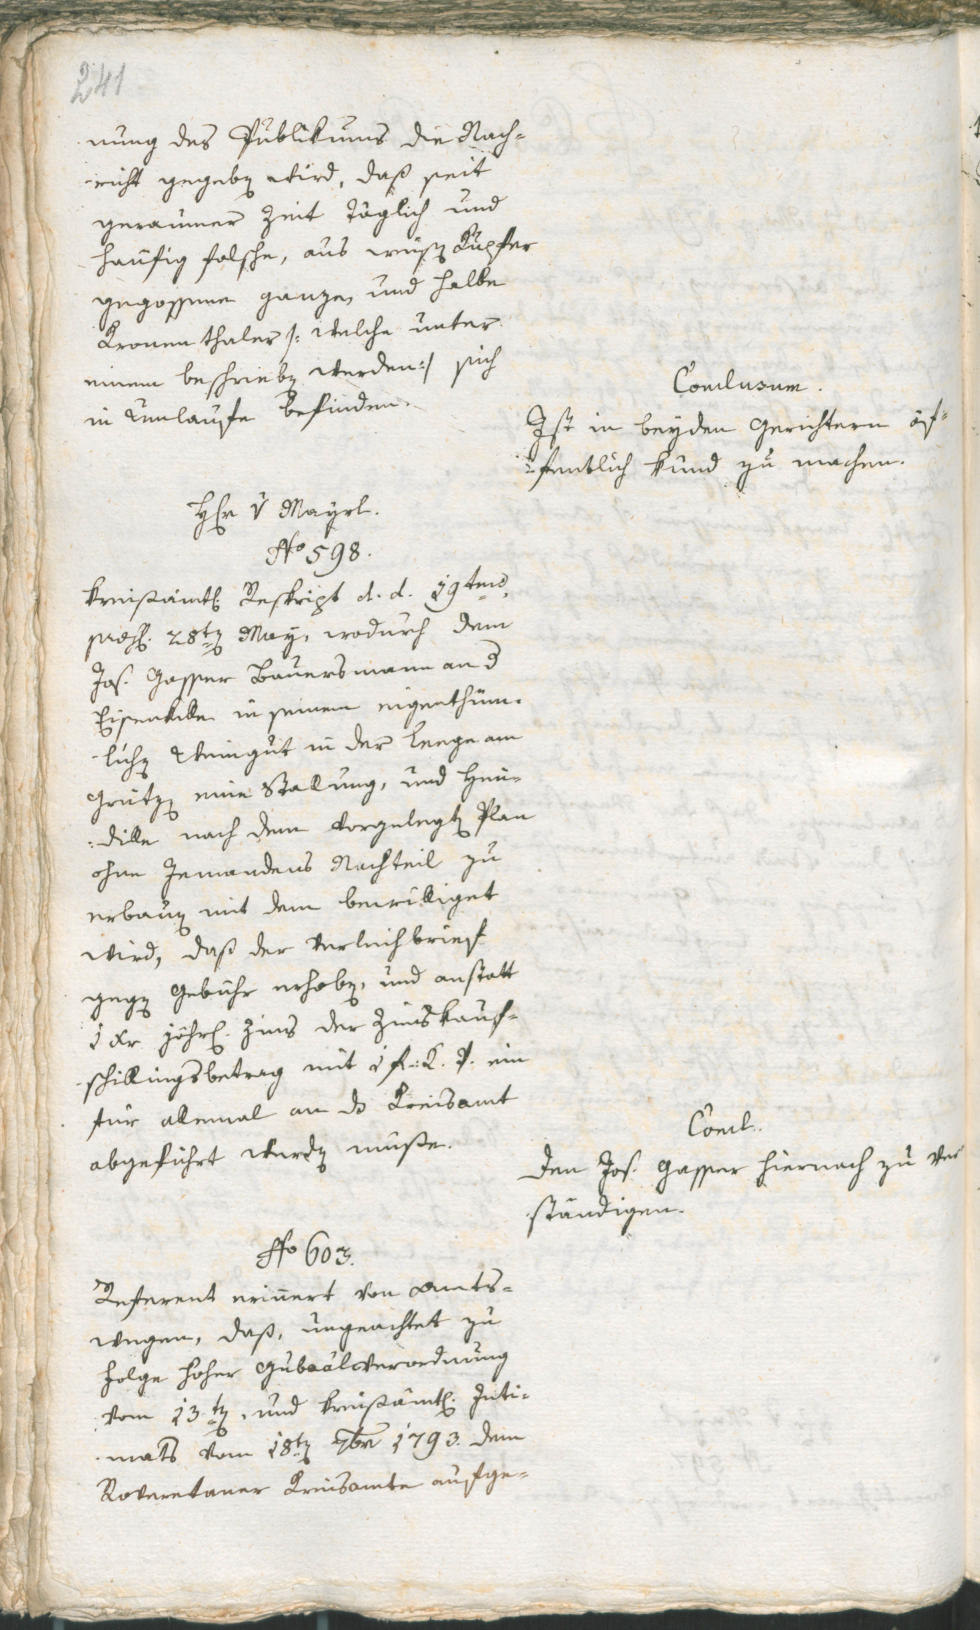 241
nung des Publikums die Nach-
richt gegeben wird, daß seit
geraumer Zeit täglich und
häufig falsche, aus weißen Kupfer
gegossene ganze, und halbe
Kronenthaler /: welche unter
einem beschrieben werden :/ sich
in Umlaufe befinden.
Conclusum.
Ist in beyden Gerichtern öf-
fentlich kund zu machen.
Hr v Mayrl.
No 598.
Kreißämtl. Reskript d. d. 19ten
28ten May, wodurch dem
Jos. Gasser Bauersmann an d
in seinem eigenthüm-
lichen Weingut in der Leege am
Grutzen eine Stallung, und Heu-
dille nach dem vorgelegten Plan
ohne Jemandens Nachteil zu
erbauen mit dem bewilliget
wird, daß der Verleihbrief
gegen Gebühr erhoben, und anstatt
1 Xr jährl. Zins der Zinskauf-
schillingsbetrag mit 1 f: ein
für allemal an ds Kreisamt
abgeführt werden müße.
Concl.
Den Jos. Gasser hiernach zu ver
ständigen.
No 603.
Referent erinnert von Amts-
wegen, daß, ungeachtet zu
Folge hoher Gubealverordnung
vom 13ten, und kreißämtl. Inti-
mats vom 18ten 7ber 1793. dem
Roveretaner Kreisamte aufge-